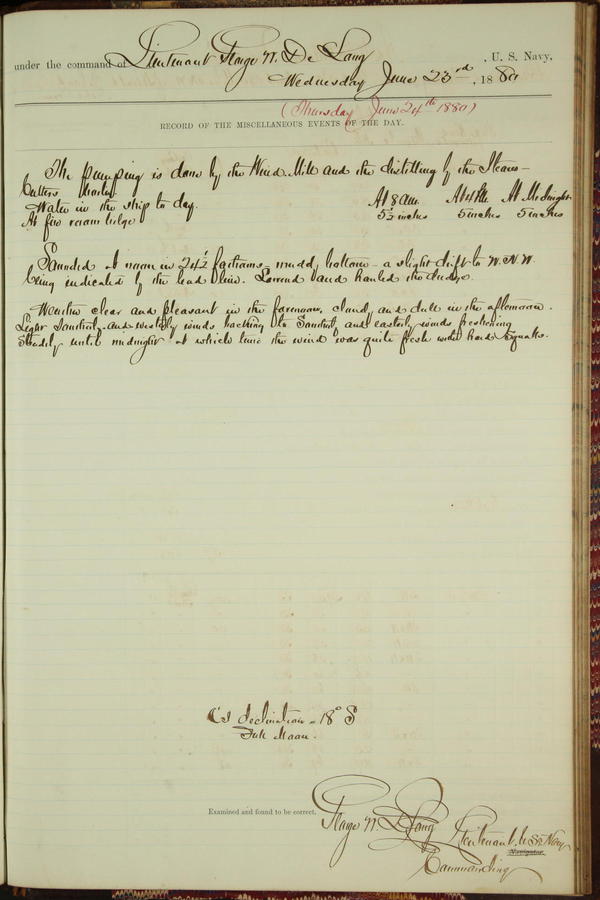 under the command of Lieutenant George W. De Long, U. S. Navy,
Wednesday June 23rd, 1880
(Thursday June 24th 1880)
RECORD OF THE MISCELLANEOUS EVENTS OF THE DAY.
The pumping is done by the Wind Mill and the distilling by the Steam-
Cutters boiler
Water in the ship to day. At 8 AM. At 4 PM. At Midnight
At fire room bilge 5½ inches 5 inches 5 inches
Sounded at noon in 24½ fathoms - muddy bottom - a slight drift to W.N.W.
being indicated by the lead line. Lowered and hauled the dredge.
Weather clear and pleasant in the forenoon, cloudy and dull in the afternoon.
Light Southerly and westerly winds backing to Southerly and easterly winds freshening
steadily until midnight at which time the wind was quite fresh with hard squalls.
☾'s declination = 18° S
Full Moon.
Examined and found to be correct.
George W. De Long Lieutenant U.S. Navy
Navigator
Commanding